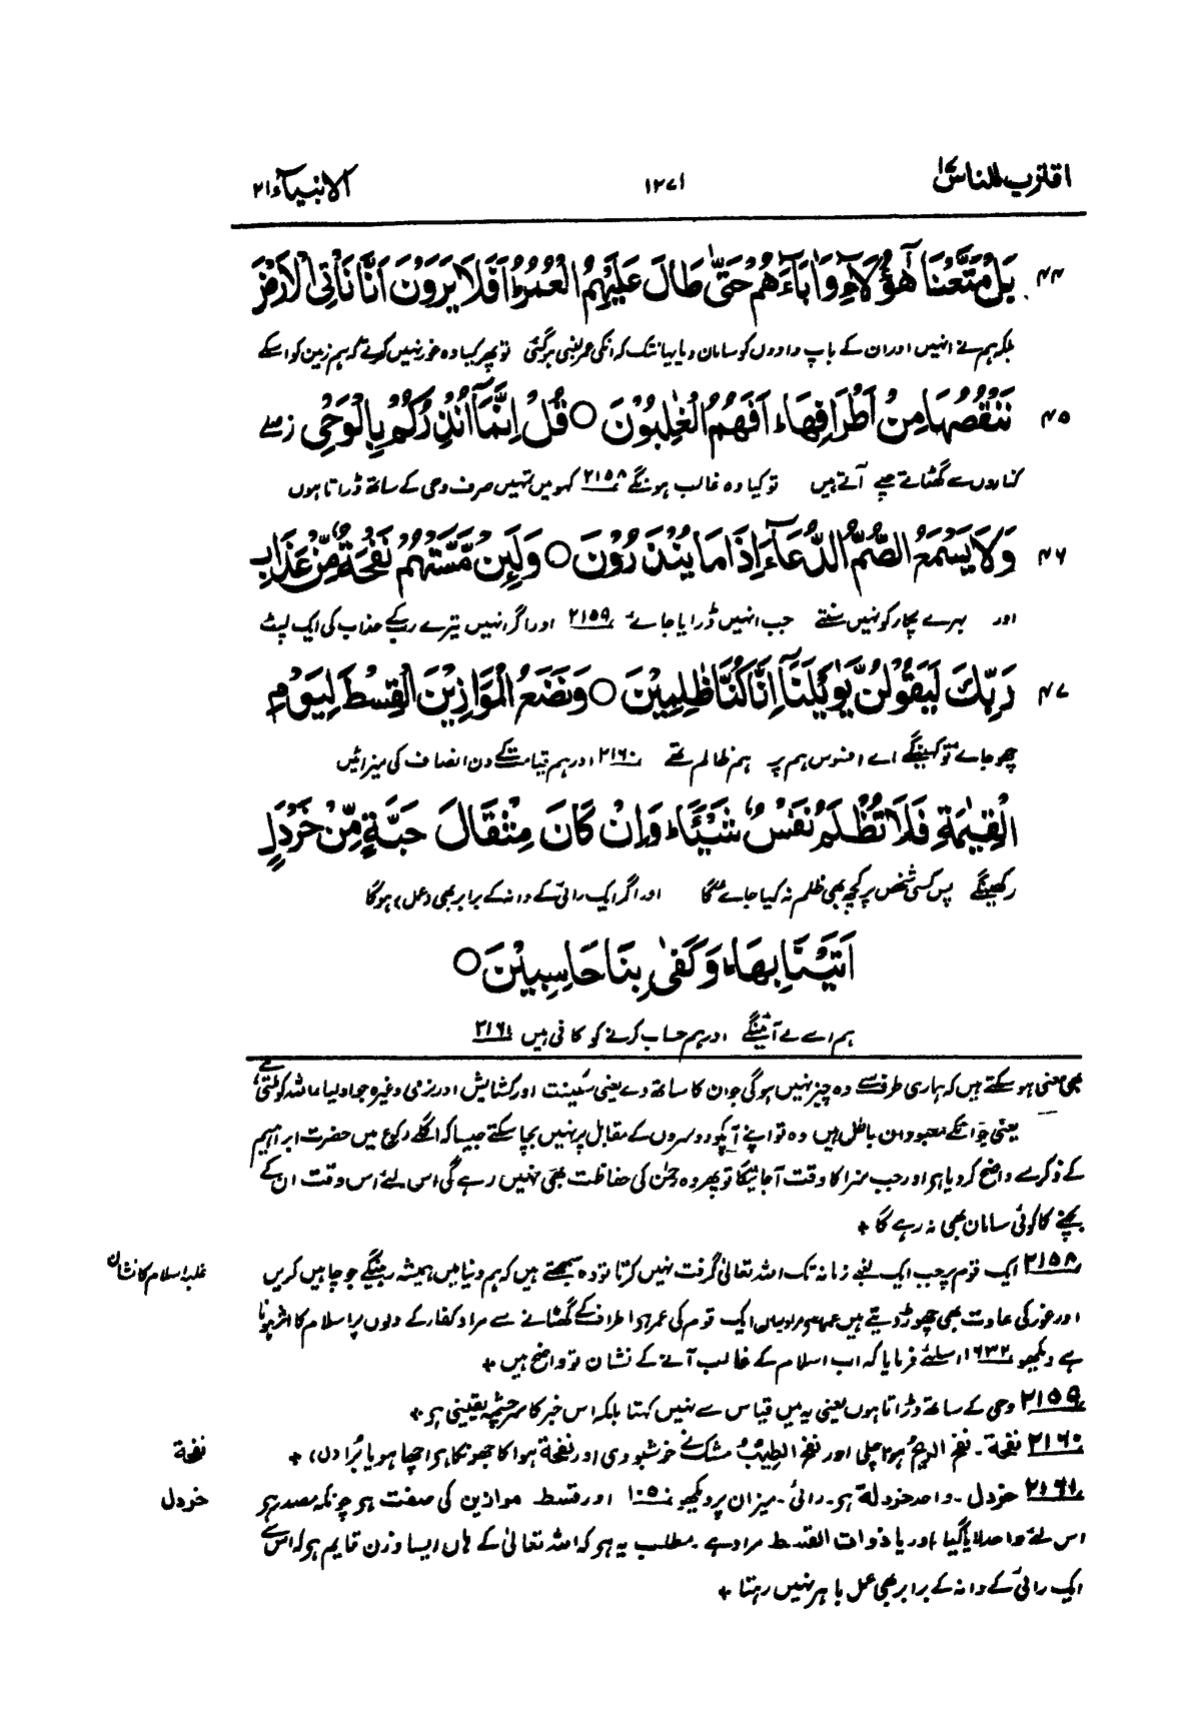 اقترب للناس ۱۷
۱۲۷۱
الانبیآء ۲۱
۴۴ بَلْ مَتَّعْنَا هٰٓؤُلَآءِ وَاٰبَآءَهُمْ حَتّٰى طَالَ عَلَيْهِمُ الْعُمُرُ اَفَلَا يَرَوْنَ اَنَّا نَأْتِى الْاَرْضَ
بلکہ ہم نے انہیں اور ان کے باپ دادوں کو سامان دیا یہانتک کہ انکی عمر لمبی ہوگئی تو پھر کیا وہ غور نہیں کرتے کہ ہم زمین کو اسکے
۴۵ نَنْقُصُهَا مِنْ اَطْرَافِهَا ؕ اَفَهُمُ الْغٰلِبُوْنَ ○ قُلْ اِنَّمَآ اُنْذِرُكُمْ بِالْوَحْىِ زصلے
کناروں سے گھٹاتے چلے آتے ہیں تو کیا وہ غالب ہونگے ۲۱۵۸ کہو میں تمہیں صرف وحی کے ساتھ ڈراتا ہوں
۴۶ وَلَا يَسْمَعُ الصُّمُّ الدُّعَآءَ اِذَا مَا يُنْذَرُوْنَ ○ وَلَئِنْ مَّسَّتْهُمْ نَفْحَةٌ مِّنْ عَذَابِ
اور بہرے پکار کو نہیں سنتے جب انہیں ڈرایا جائے ۲۱۵۹ اور اگر انہیں تیرے رب کے عذاب کی ایک لپٹ
۴۷ رَبِّكَ لَيَقُوْلُنَّ يٰوَيْلَنَآ اِنَّا كُنَّا ظٰلِمِيْنَ ○ وَنَضَعُ الْمَوَازِيْنَ الْقِسْطَ لِيَوْمِ
چھو جائے تو کہینگے اے افسوس ہم پر ہم ظالم تھے ۲۱۶۰ اور ہم قیامت کے دن انصاف کی میزانیں
الْقِيٰمَةِ فَلَا تُظْلَمُ نَفْسٌ شَيْئًا ؕ وَاِنْ كَانَ مِثْقَالَ حَبَّةٍ مِّنْ خَرْدَلٍ
رکھینگے پس کسی شخص پر کچھ بھی ظلم نہ کیا جائے گا اور اگر ایک رائی کے دانہ کے برابر بھی (عمل) ہوگا
اَتَيْنَا بِهَا ؕ وَكَفٰى بِنَا حَاسِبِيْنَ ○
ہم اسے لے آئینگے اور ہم حساب کرنے کو کافی ہیں ۲۱۶۱
بھی معنی ہو سکتے ہیں کہ ہماری طرف سے وہ چیز نہیں ہوگی جو ان کا ساتھ دے یعنی سکینت اور کشایش اور نرمی وغیرہ جو اولیاء اللہ کو ملتی ہے
یعنی جو انکے معبودان باطل ہیں وہ تو اپنے آپکو دوسروں کے مقابل پر نہیں بچا سکتے جیسا کہ اگلے رکوع میں حضرت ابراہیم
کے ذکر نے واضح کر دیا ہو اور جب سزا کا وقت آجائیگا تو پھر وہ رحمٰن کی حفاظت بھی نہیں رہے گی اس لئے اس وقت ان کے
بچنے کا کوئی سامان بھی نہ رہے گا +
۲۱۵۸ ایک قوم پر جب ایک لمبے زمانہ تک اللہ تعالیٰ گرفت نہیں کرتا تو وہ سمجھتے ہیں کہ ہم دنیا میں ہمیشہ رہینگے جو چاہیں کریں
غلبہ اسلام کا نشان
اور غور کی عادت بھی چھوڑ دیتے ہیں عمر سے مراد یہاں ایک قوم کی عمر ہو اطراف کے گھٹانے سے مراد کفار کے دلوں پر اسلام کا اثر ہونا
ہے دیکھو ۱۶۳۲ اسلئے فرمایا کہ اب اسلام کے غالب آنے کے نشان تو واضح ہیں +
۲۱۵۹ وحی کے ساتھ ڈراتا ہوں یعنی یہ میں قیاس سے نہیں کہتا بلکہ اس خبر کا سرچشمہ یقینی ہو +
۲۱۶۰ نفحة ۔ نفح الریح ہوا چلی اور نفح الطیب مشک نے خوشبو دی اور نفحة ہوا کا جھونکا ہو اچھا ہو یا برا (ل) +
نفحة
۲۱۶۱ خردل ۔ واحد خردلة ہو ۔ رائی ۔ میزان پر دیکھو ۱۰۵۰ اور قسط موازین کی صفت ہو چونکہ مصدر ہو
خردل
اس لئے واحد لایا گیا اور یا ذوات القسط مراد ہے ۔ مطلب یہ ہو کہ اللہ تعالیٰ کے ہاں ایسا وزن قایم ہو کہ اس سے
ایک رائی کے دانہ کے برابر بھی عمل باہر نہیں رہتا +